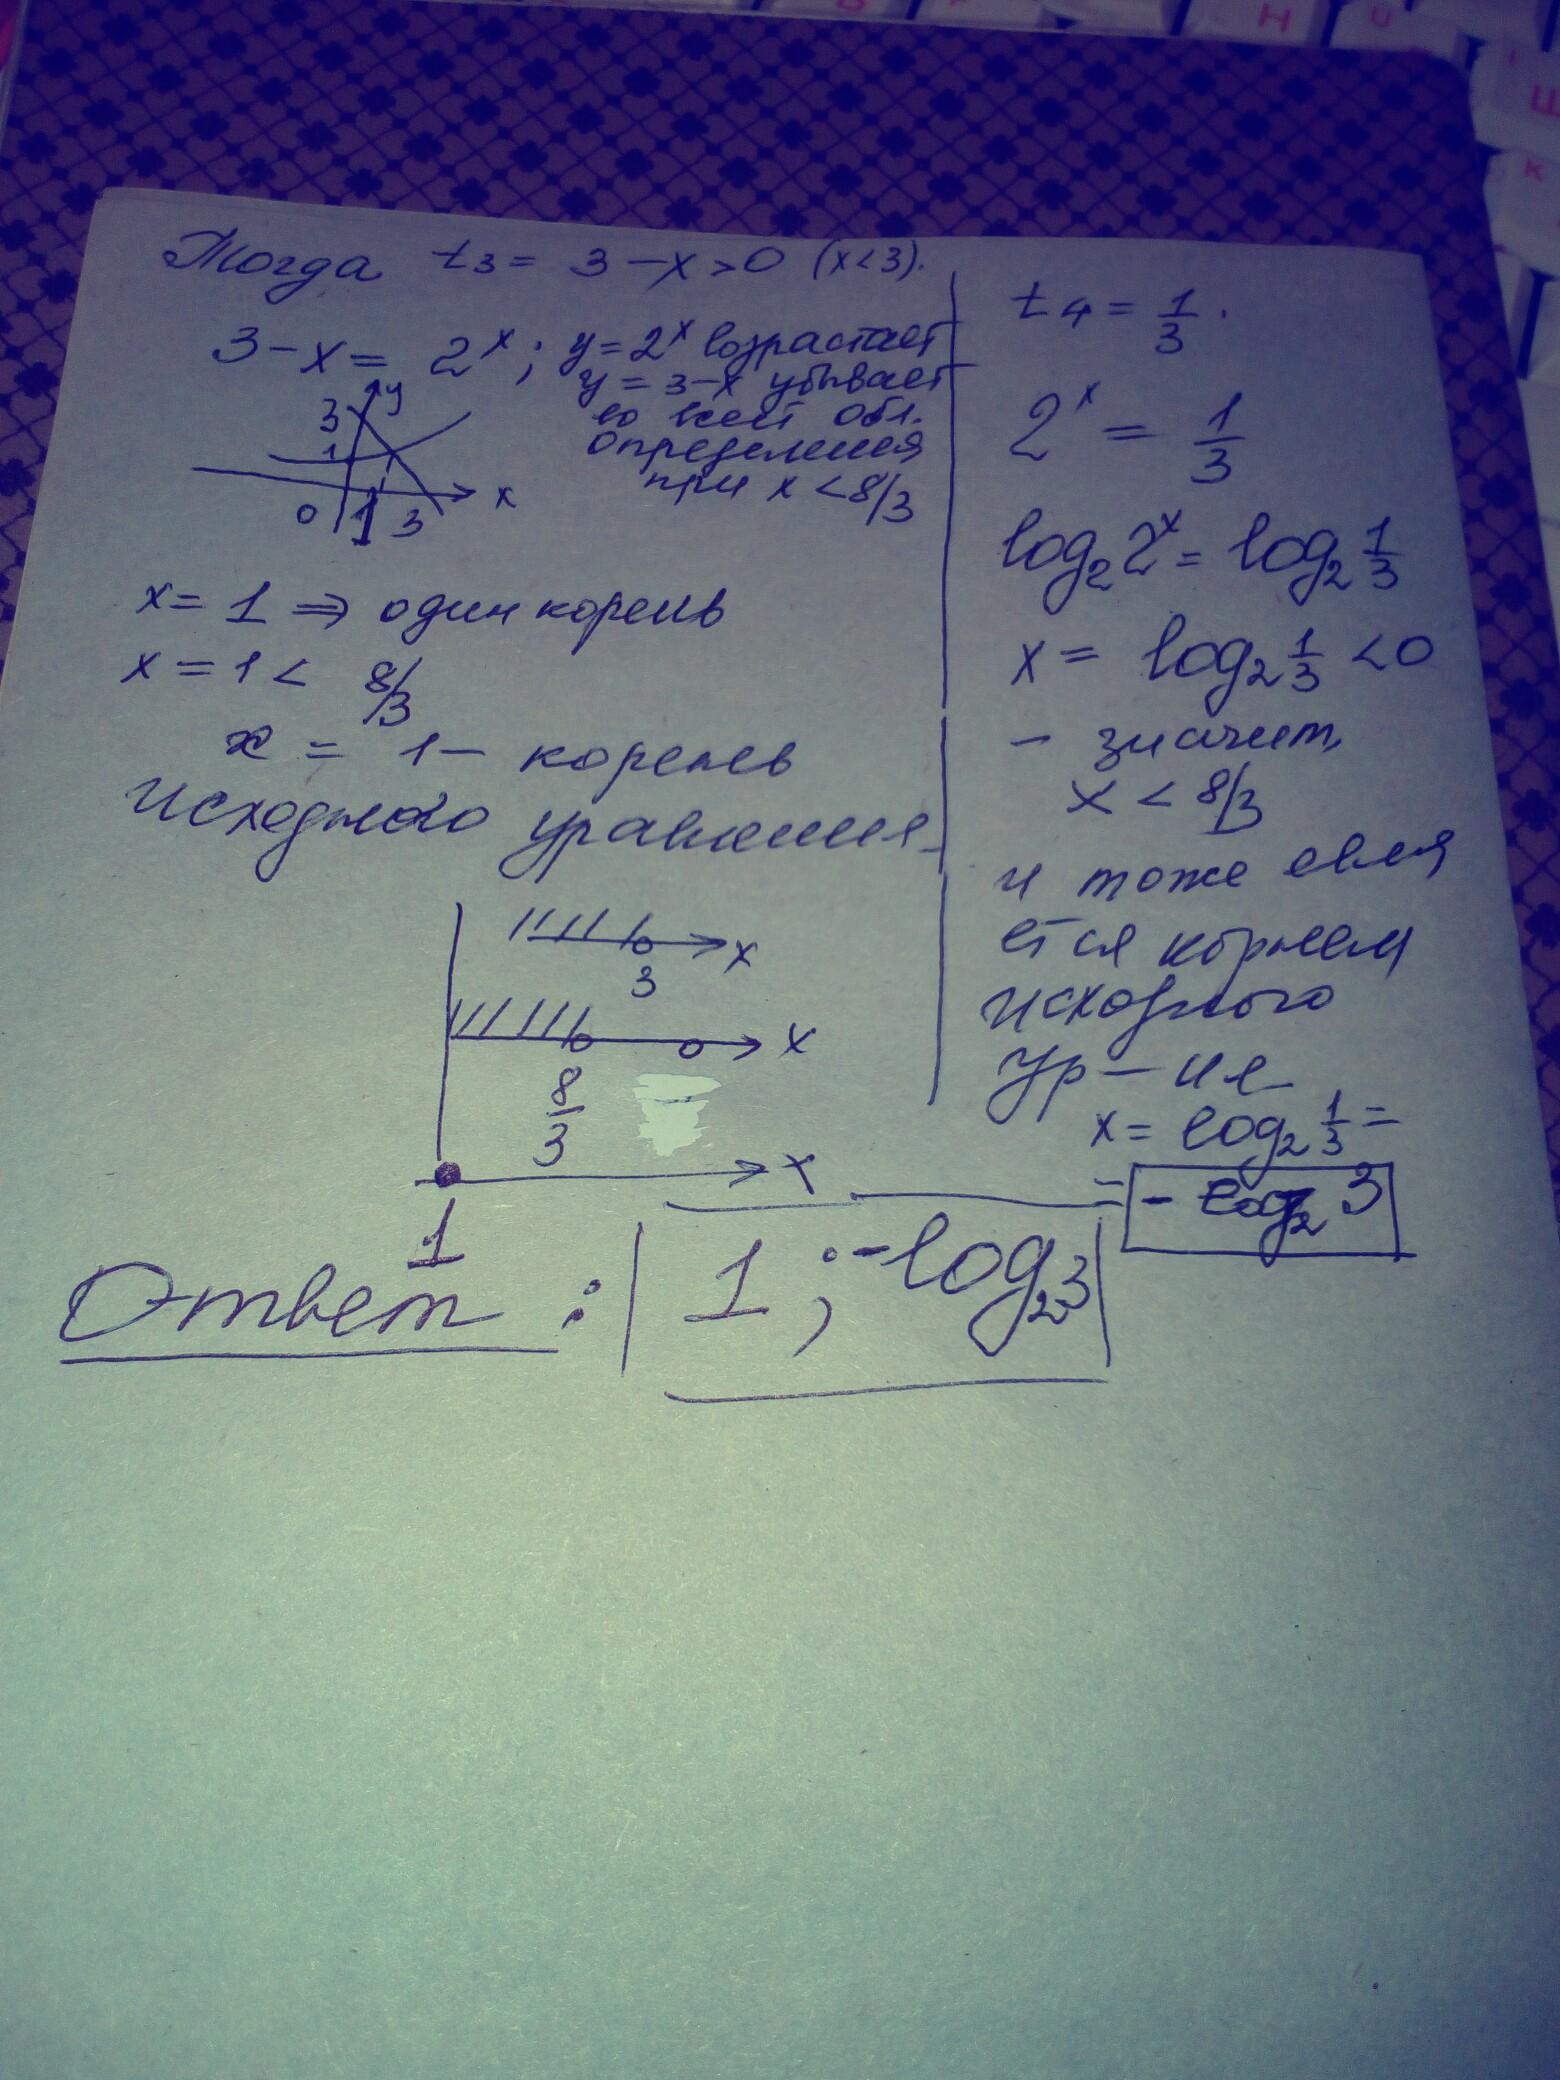 Тогда t₃ = 3 - x > 0 (x < 3).
3 - x = 2ˣ; y = 2ˣ возрастает
y = 3 - x убывает
во всей обл.
определения
при x < 8/3
y
3
1
0 1 3 x
x = 1 ⇒ один корень
x = 1 < 8/3
x = 1 - корень
исходного уравнения
3 x
8/3 x
1 x
t₄ = 1/3.
2ˣ = 1/3
log₂ 2ˣ = log₂ 1/3
x = log₂ 1/3 < 0
- значит,
x < 8/3
и тоже явля
ется корнем
исходного
ур-ия
x = log₂ 1/3 =
= - log₂ 3
Ответ: 1; -log₂3